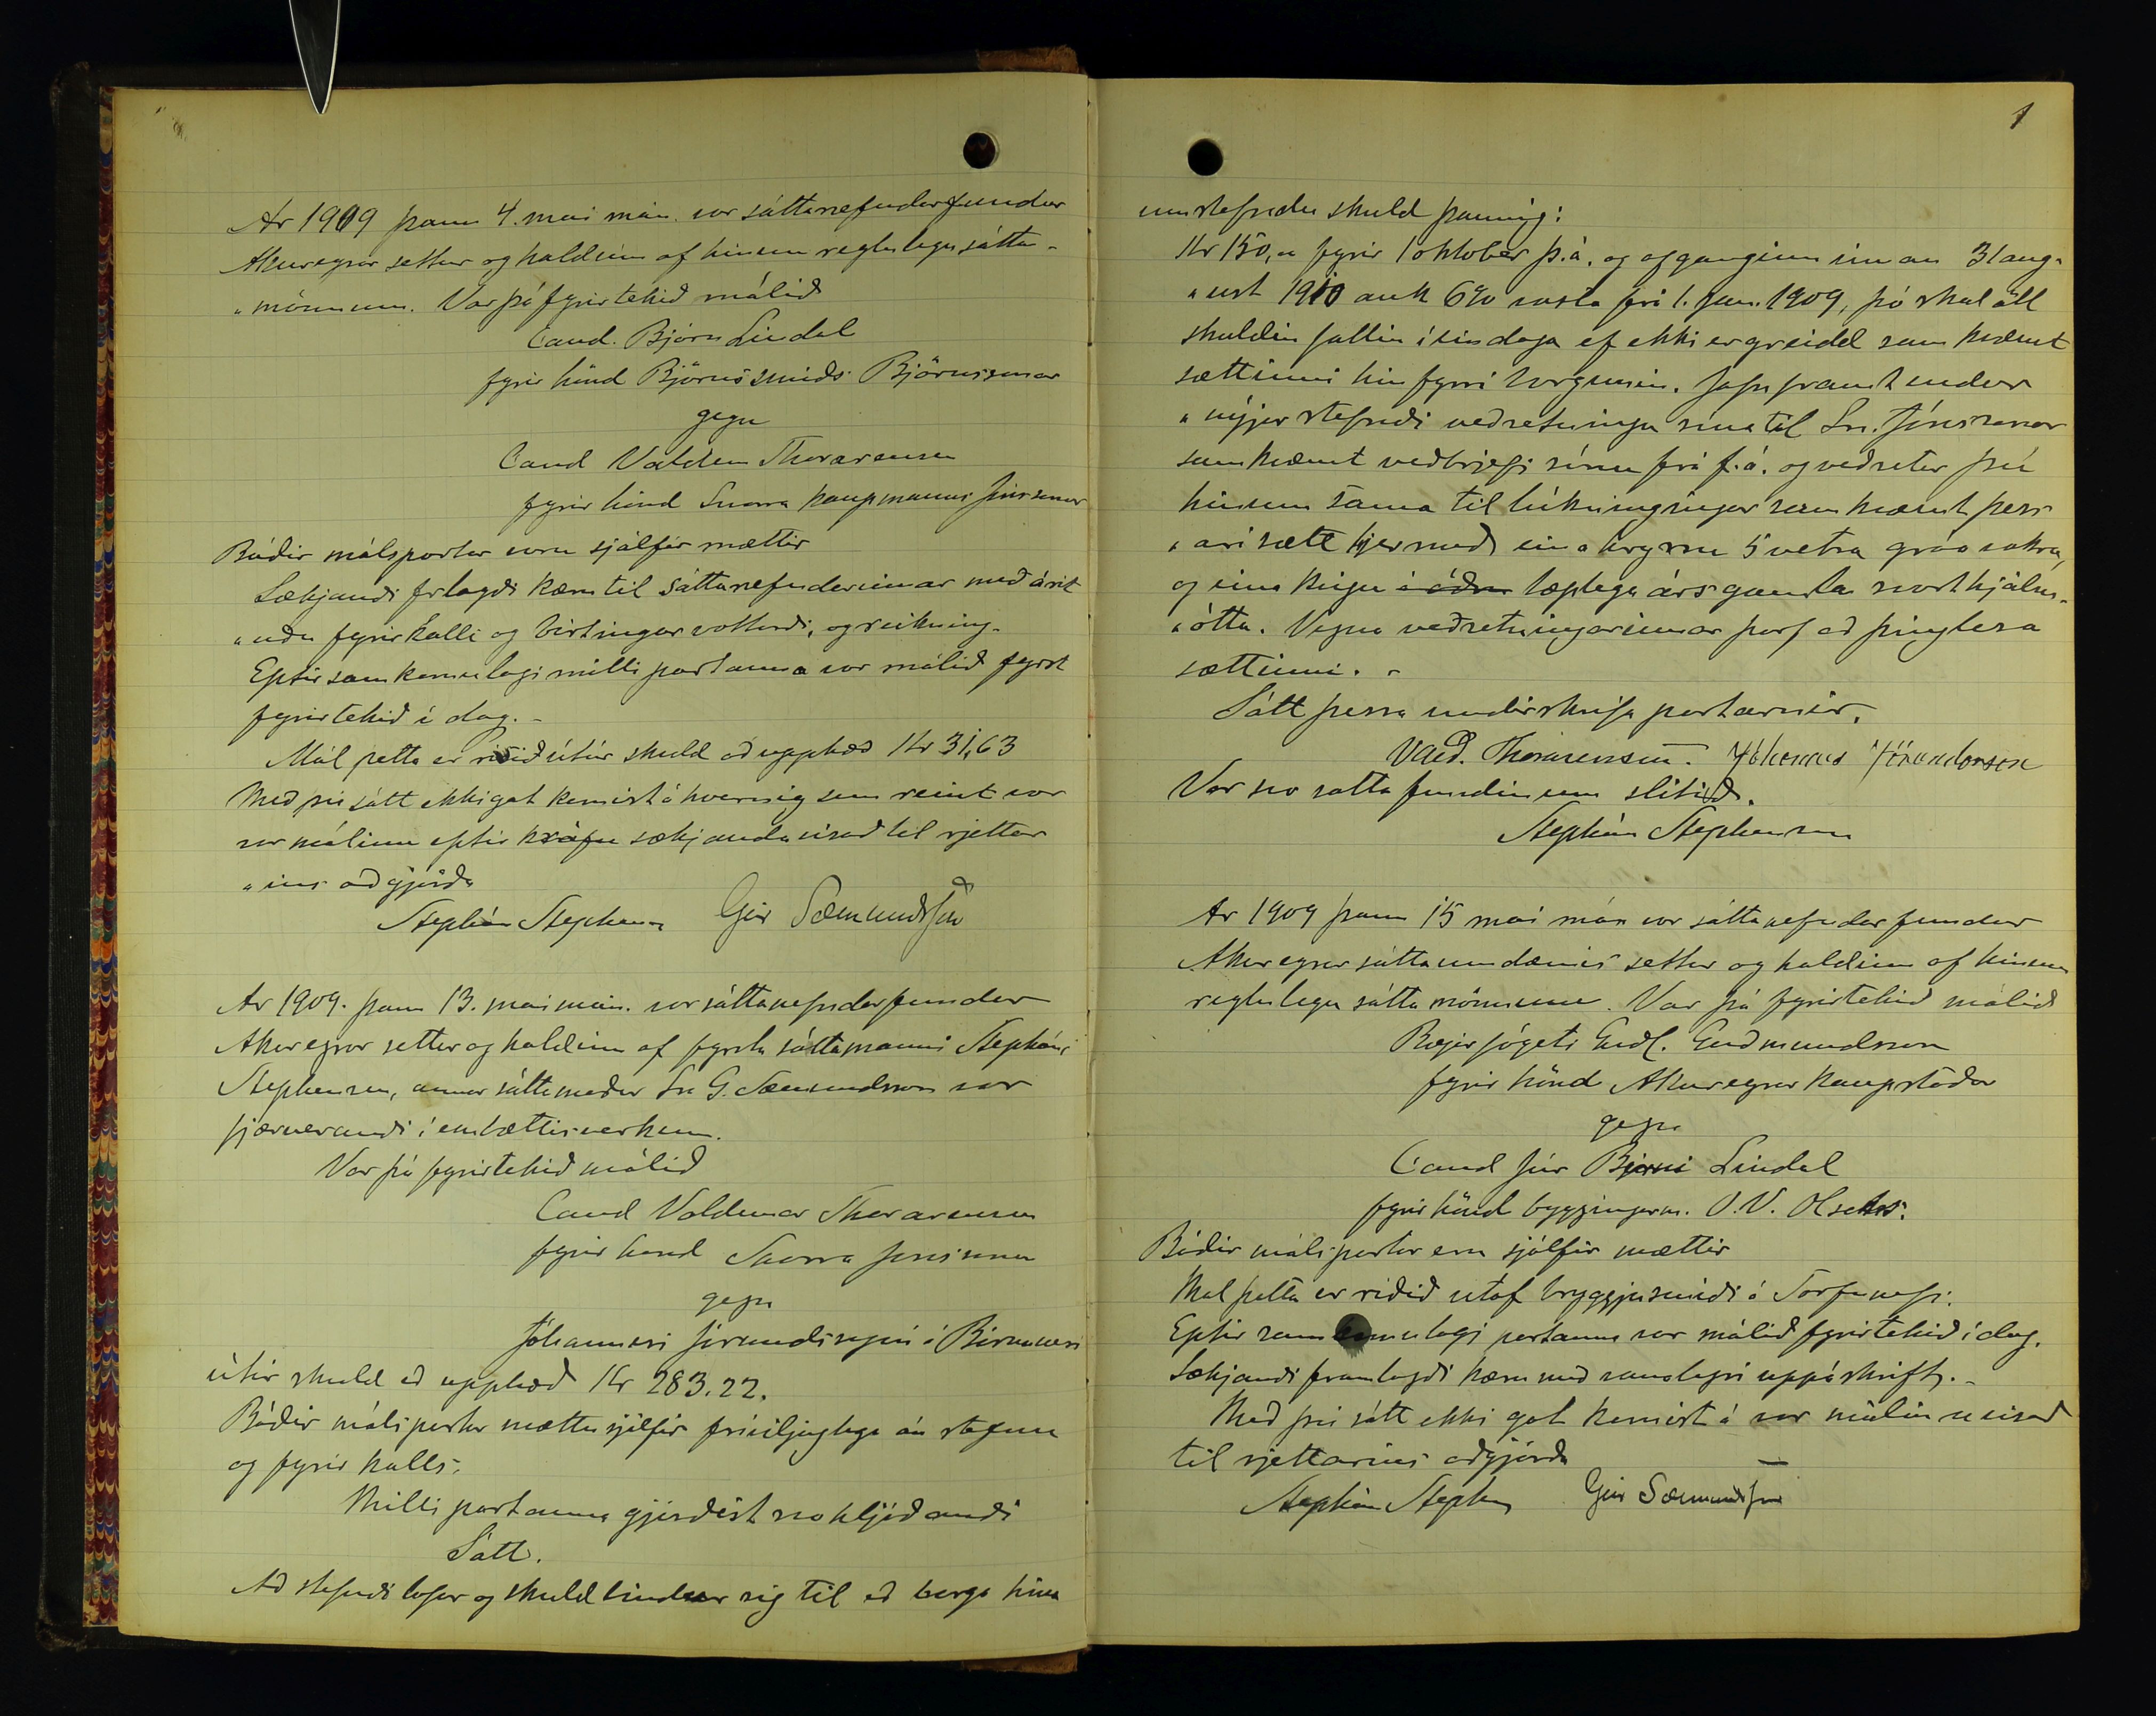 Ár 1909 þann 4. mai mán. var sáttanefndarfundur
Akureyrar settur og haldinn af hinum reglulegu sátta-
"mönnum. Var þá fyrirtekið málið
Cand. Björn Líndal
fyrir hönd Björns smiðs Björnssonar
gegn
Cand Valdem Thorarensen
fyrir hönd Snorra kaupmanns Jónssonar
Báðir málspartar voru sjálfir mættir
Sækjandi frlagði kæru til sáttanefndarinnar með árit
"uðu fyrirkalli og birtingar vottorði, og reikning.
Eptir samkomulagi milli partanna var málið fyrst
fyrirtekið í dag.-
Mál þetta er risið útúr skuld að upphæð Kr 31,63
Með því sátt ekki gat komist á hvernig sem reint var
var málinu eptir kröfu sækjanda vísað til rjettar
"ins aðgjörða
Stephán Stephensen Geir Sæmundsson
Ár 1909. þann 13. mai mán. var sáttanefndarfundur
Akureyrar settur og haldinn af fyrsta sáttamanni Stepháni
Stephensen, annar sáttamaður Sra G. Sæmundsson var
fjærverandi í embættisverkum.
Var þá fyrirtekið málið
Cand Valdemar Thorarensen
fyrir hönd Snorra Jónssonar
gegn
Jóhannesi Jörundssyni á Birnunesi
útúr skuld að upphæð Kr 283.22.
Báðir málspartar mættu sjálfir fríviljuglega án stefnu
og fyrir kalls.
Milli partanna gjörðist svo hljóðandi
Sátt.
Að stefndi lofar og skuldbindur sig til að borga hina
1
umstefndu skuld þannig:
Kr 150,00 fyrir 1 oktober þ.á. og afganginn innan 31 aug-
"ust 1910 auk 6% vaxta frá 1. jan. 1909, þó skal öll
skuldin fallin í eindaga ef ekki er greidd samkvæmt
sættinni hin fyrri borgunin. Jafnframt endur
"nýjar stefndi veðsetningu sína til Sn. Jónssonar
samkvæmt veðbrjefi sínu frá f.á. og veðsetur því
hinum sama til lúkningingar samkvæmt þess
"ari sætt hjermeð eina hryssu 5 vetra gráa vakra,
og eina kvígu í öðru tæplega ársgamla svarthjálm-
"ótta. Vegna veðsetningarinnar þarf að þinglesa
sættinni. -
Sátt þessa undirskrifa partarnir.
Vald. Thorarensen. Jóhannes Jörundarson
Var svo sáttafundinum slitið.
Stephán Stephensen
Ár 1909 þann 15 mai mán var sáttanefndarfundur
Akureyrar sáttaumdæmis settur og haldinn af hinum
reglulegu sáttamönnum. Var þá fyrirtekið málið
Bæjarfógeti Guðl. Guðmundsson
fyrir hönd Akureyrar kaupstaðar
gegn
Cand júr Birni Líndal
fyrir hönd byggingarm. O.V. Olsens.
Báðir málspartar eru sjálfir mættir
Mál þetta er risið útaf bryggjusmíði á Torfunefi.
Eptir samkomulagi partanna var málið fyrirtekið í dag.
Sækjandi framlagði kæru með vanalegri uppáskrift. -
Með því sátt ekki gat komist á var málinu vísað
til rjettarins aðgjörða
Stephán Stephensen Geir Sæmundsson